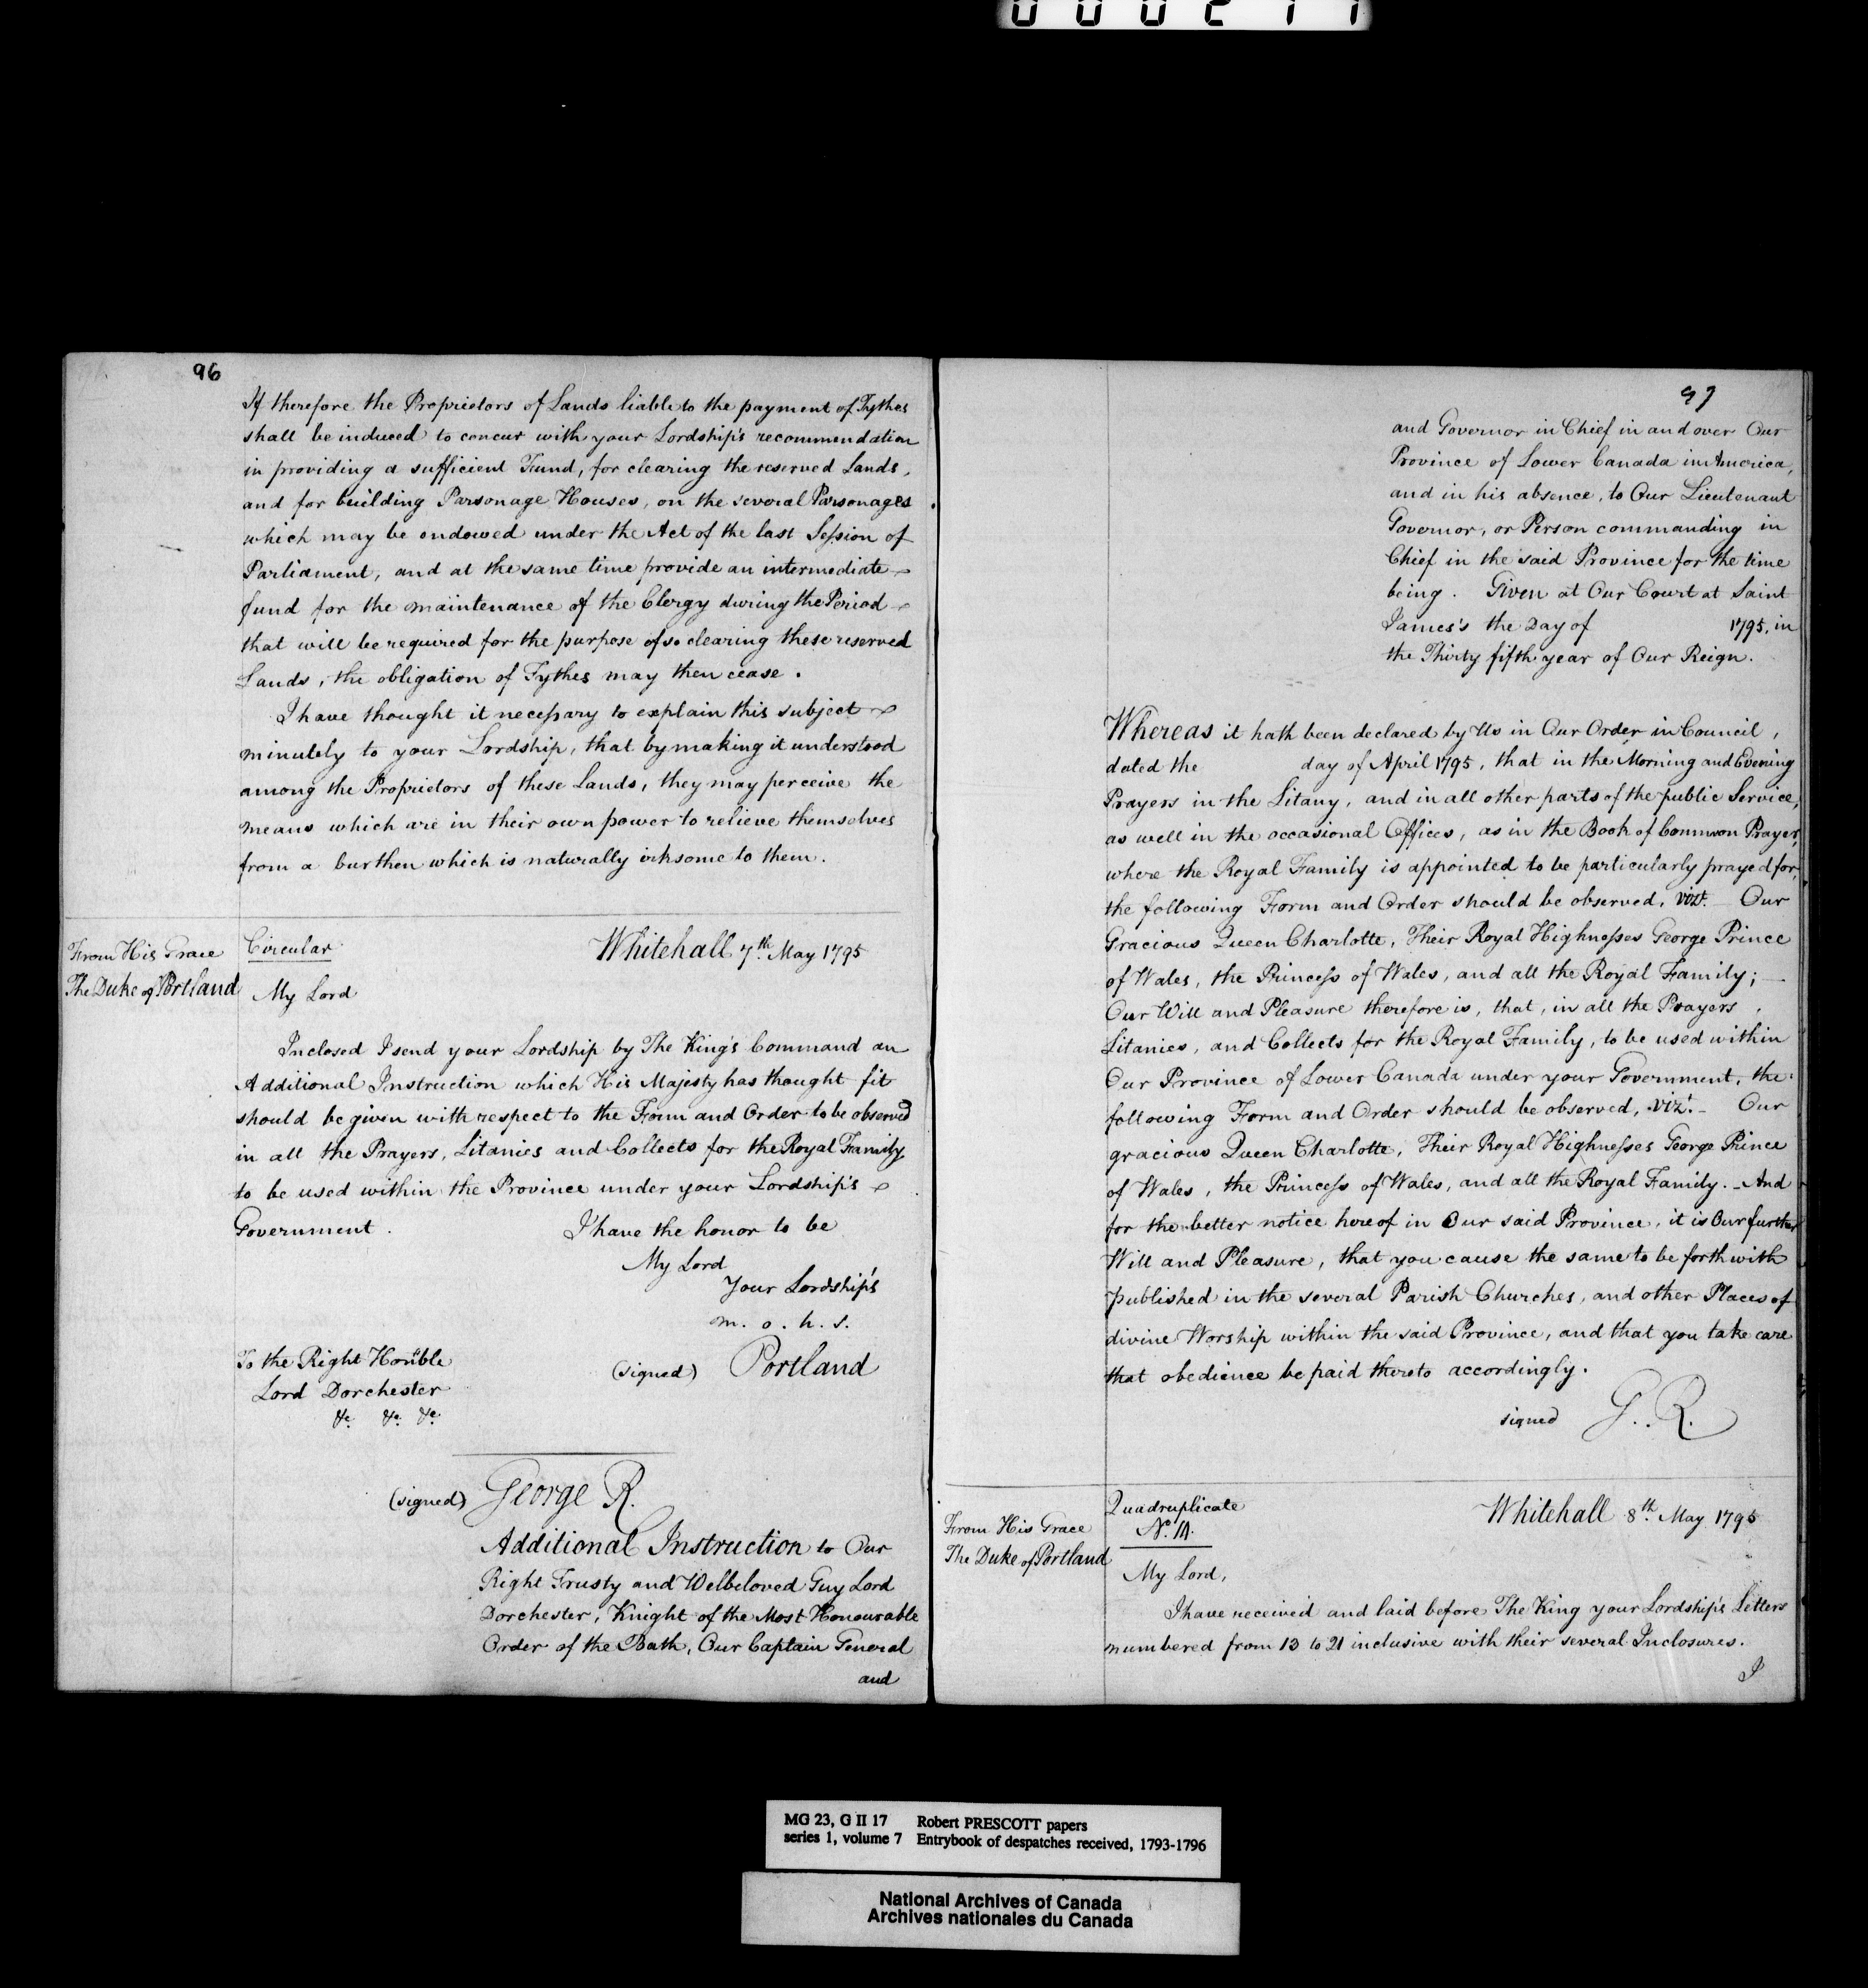 96
If therefore the Proprietors of Lands liable to the payment of Tythes
shall be induced to concur with your Lordship's recommendation
in providing a sufficient Fund, for clearing the reserved Lands,
and for building Parsonage Houses, on the several Parsonages
which may be endowed under the Act of the last Session of
Parliament, and at the same time provide an intermediate
fund for the maintenance of the Clergy during the Period
that will be required for the purpose of so clearing these reserved
Lands, the obligation of Tythes may then cease.
I have thought it necessary to explain this subject
minutely to your Lordship, that by making it understood
among the Proprietors of these Lands, they may perceive the
means which are in their own power to relieve themselves
from a burthen which is naturally irksome to them.
From His Grace
The Duke of Portland
Circular
Whitehall 7th May 1795
My Lord
Inclosed I send your Lordship by The King's Command an
Additional Instruction which His Majesty has thought fit
should be given with respect to the Form and Order to be observed
in all the Prayers, Litanies and Collects for the Royal Family
to be used within the Province under your Lordship's
Government.
I have the honor to be
My Lord
Your Lordship's
m. o. h. s.
(signed) Portland
To the Right Honble
Lord Dorchester
&c. &c. &c.
(signed) George R.
Additional Instruction to Our
Right Trusty and Welbeloved Guy Lord
Dorchester, Knight of the Most Honourable
Order of the Bath, Our Captain General
and
97
and Governor in Chief in and over Our
Province of Lower Canada in America,
and in his absence, to Our Lieutenant
Governor, or Person commanding in
Chief in the said Province for the time
being. Given at Our Court at Saint
James's the Day of 1795, in
the Thirty fifth year of Our Reign.
Whereas it hath been declared by Us in Our Order in Council,
dated the day of April 1795, that in the Morning and Evening
Prayers in the Litany, and in all other parts of the public Service,
as well in the occasional Offices, as in the Book of Common Prayer,
where the Royal Family is appointed to be particularly prayed for,
the following Form and Order should be observed, vizt. Our
Gracious Queen Charlotte, Their Royal Highnesses George Prince
of Wales, the Princess of Wales, and all the Royal Family;
Our Will and Pleasure therefore is, that, in all the Prayers,
Litanies, and Collects for the Royal Family, to be used within
Our Province of Lower Canada under your Government, the
following Form and Order should be observed, vizt. Our
gracious Queen Charlotte, Their Royal Highnesses George Prince
of Wales, the Princess of Wales, and all the Royal Family. And
for the better notice hereof in Our said Province, it is Our further
Will and Pleasure, that you cause the same to be forthwith
published in the several Parish Churches, and other Places of
divine Worship within the said Province, and that you take care
that obedience be paid thereto accordingly.
signed G. R.
From His Grace
The Duke of Portland
Quadruplicate
Whitehall 8th May 1795
My Lord,
I have received and laid before The King your Lordship's Letters
numbered from 13 to 21 inclusive with their several Inclosures.
I
MG 23, G II 17 Robert PRESCOTT papers
series 1, volume 7 Entrybook of despatches received, 1793-1796
National Archives of Canada
Archives nationales du Canada